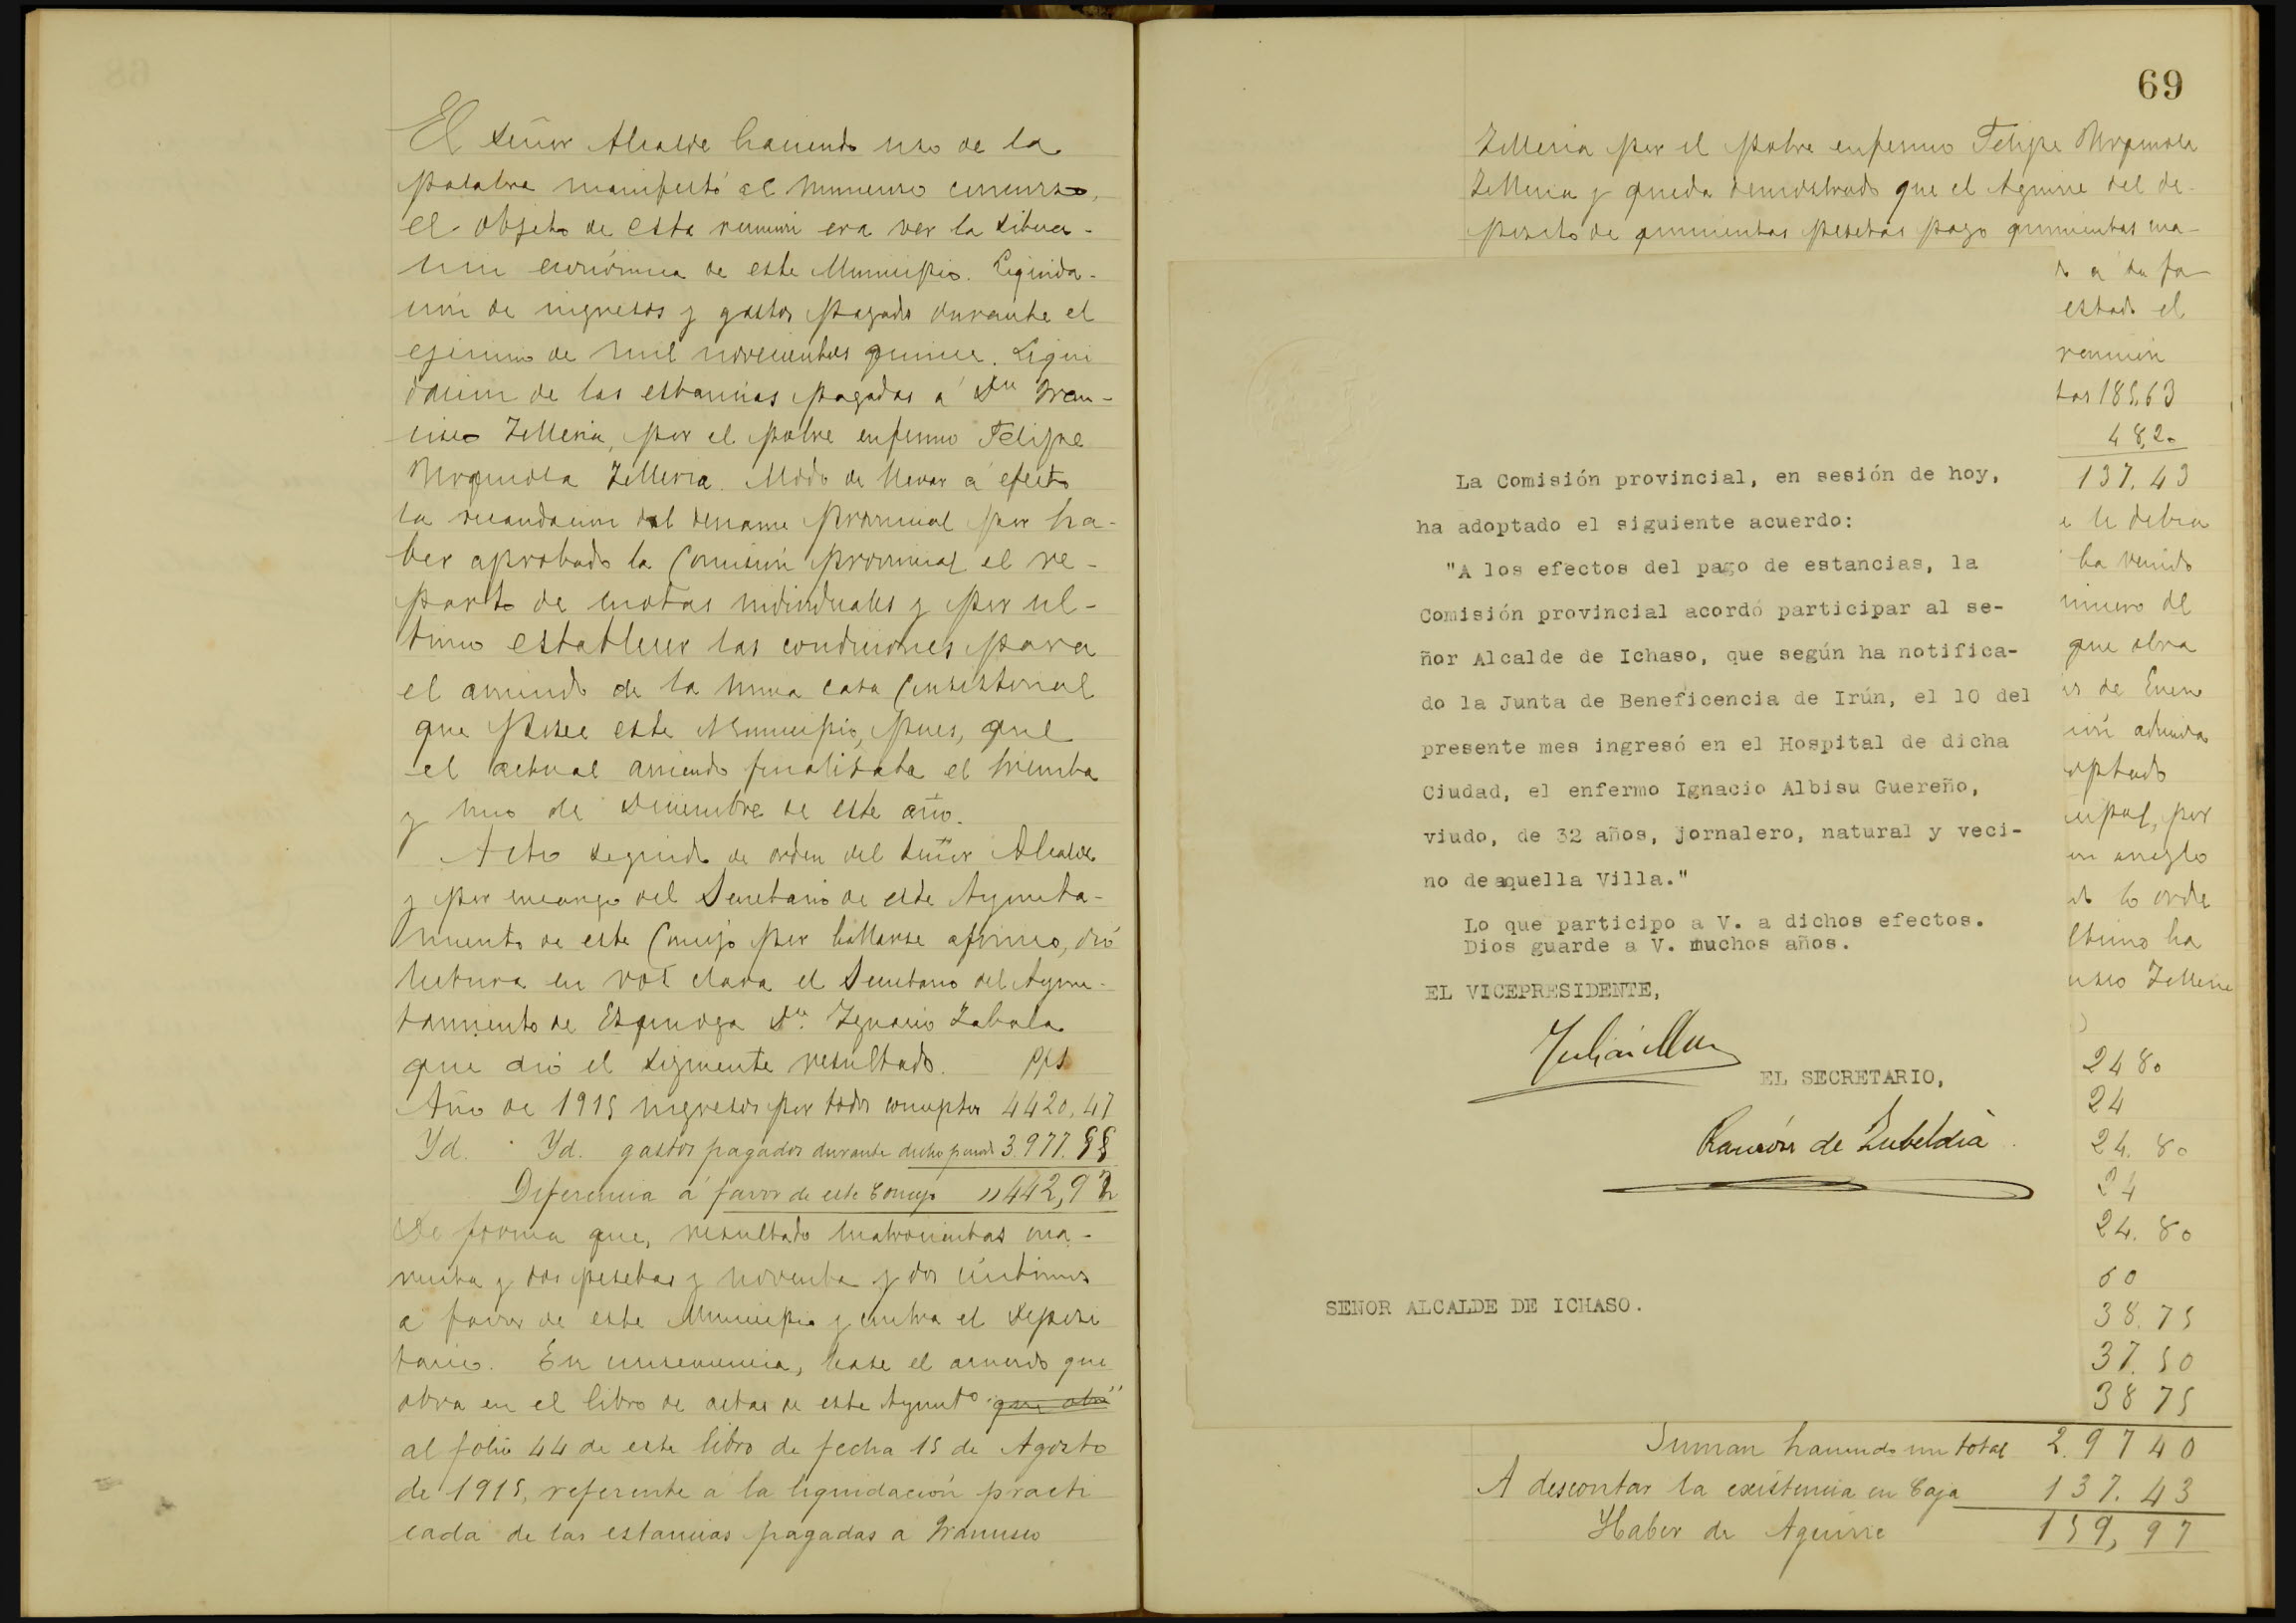 El Señor Alcalde haciendo uso de la
palabra manifestó al numeroso concurso,
el objeto de esta reunion era ver la situa-
cion económica de este Municipio. Liquida-
ción de ingresos y gastos pagados durante el
ejercicio de mil novecientos quince. Liqui
dacion de las estancias pagadas á Dn Fran-
cisco Zelleria, por el pobre enfermo Felipe
Urquiola Zelleria. Modo de llevar á efecto
la recaudacion del derrame provincial por ha-
ber aprobado la Comisión provincial el re-
parto de cuotas individuales y por ul-
timo establecer las condiciones para
el arriendo de la nueva casa Consistorial
que posee este Municipio, pues, que
el actual arriendo finalizaba el treinta
y uno de Diciembre de este año.
Acto seguido de orden del Señor Alcalde
y por encargo del Secretario de este Ayunta-
miento de este Concejo por hallarse afonico, dió
lectura en voz clara el Secretario del Ayun-
tamiento de Ezquioga Dn. Ygnacio Zabala
que dió el siguiente resultado. pts
Año de 1915 ingresos por todos conceptos 4420,47
Yd. Yd. gastos pagados durante dicho periodo 3.977.55
Diferencia á favor de este Concejo " 442,92
De forma que, resultado cuatrocientas cua-
renta y dos pesetas y noventa y dos céntimos
á favor de este Municipio y contra el deposi
tario. En consecuencia, léase el acuerdo que
obra en el libro de actas de este Ayuntº que obra
al folio 44 de este libro de fecha 15 de Agosto
de 1915, referente á la liquidación practi
cada de las estancias pagadas a Francisco
69
Zelleria por el pobre enfermo Felipe Urquiola
Zelleria y queda demostrado que el Aguirre del de-
posito de quinientas pesetas pago quinientas cua-
do a su fa
estado el
reunion
tas 185,63
48,20
137.43
e le debia
ha venido
numero del
que obra
es de Enero
ión aducida
optado
cipal, por
en arreglo
lo orde
ltimo ha
cisco Zelleria
La Comisión provincial, en sesión de hoy,
ha adoptado el siguiente acuerdo:
"A los efectos del pago de estancias, la
Comisión provincial acordó participar al se-
ñor Alcalde de Ichaso, que según ha notifica-
do la Junta de Beneficencia de Irún, el 10 del
presente mes ingresó en el Hospital de dicha
Ciudad, el enfermo Ignacio Albisu Guereño,
viudo, de 32 años, jornalero, natural y veci-
no de aquella Villa."
Lo que participo a V. a dichos efectos.
Dios guarde a V. muchos años.
EL VICEPRESIDENTE,
EL SECRETARIO,
Ramón de Zubeldia
SEÑOR ALCALDE DE ICHASO.
24 80
24
24.80
24
24.80
60
38.75
37.50
38 75
Suman haciendo un total 2.97 40
A descontar la existencia en Caja 137.43
Haber de Aguirre 159,97